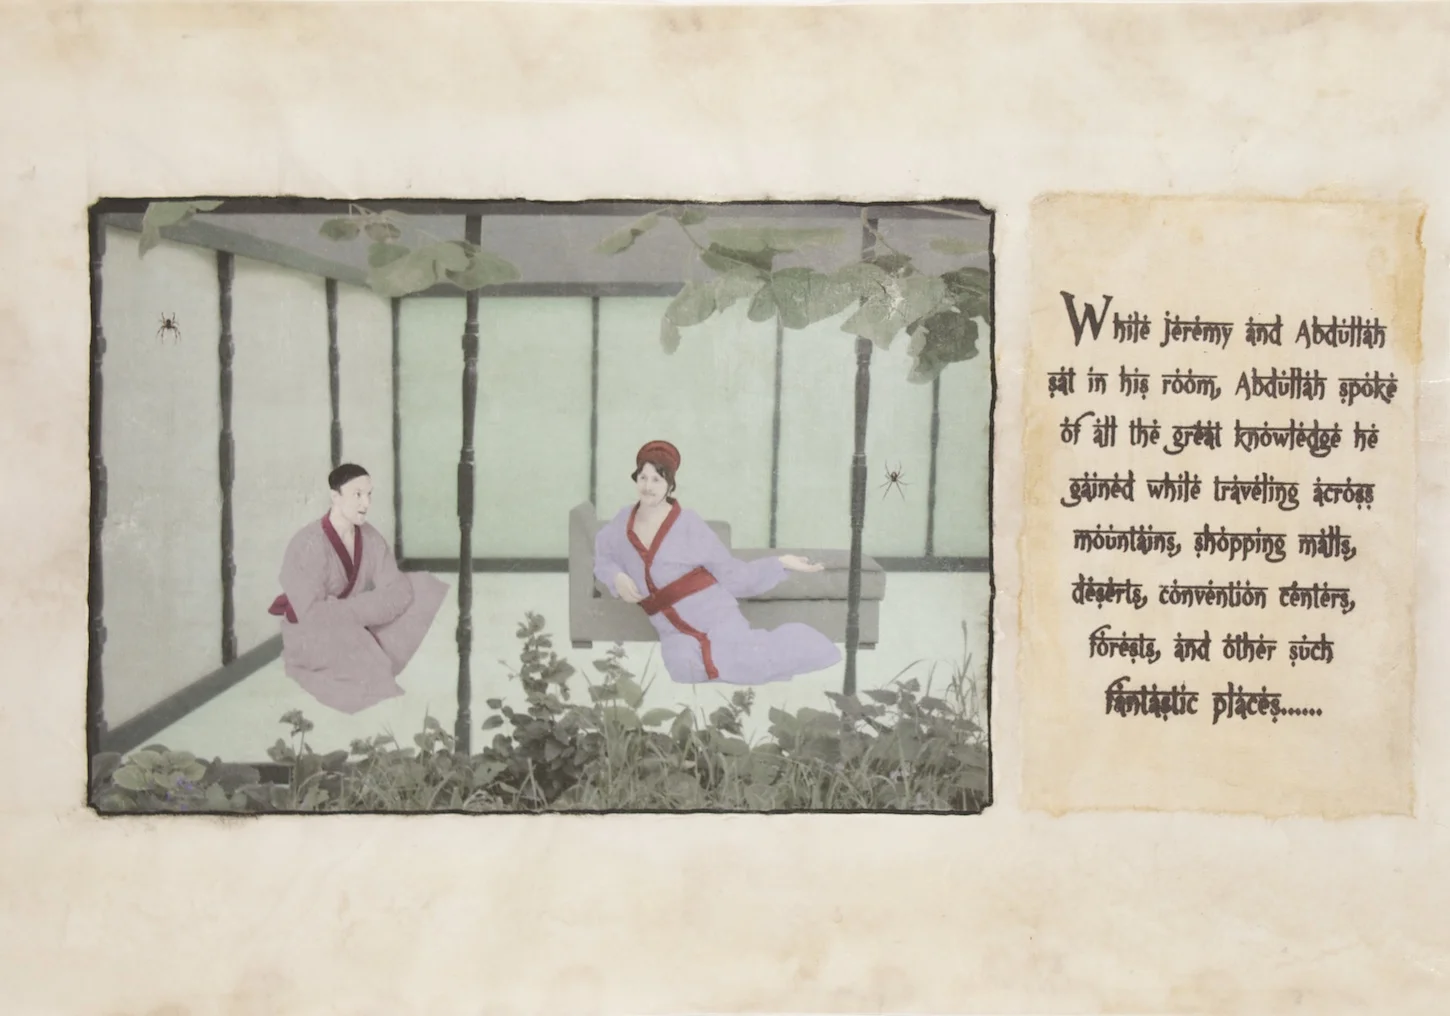 While jeremy and Abdullah
sat in his room, Abdullah spoke
of all the great knowledge he
gained while traveling across
mountains, shopping malls,
deserts, convention centers,
forests, and other such
fantastic places.......